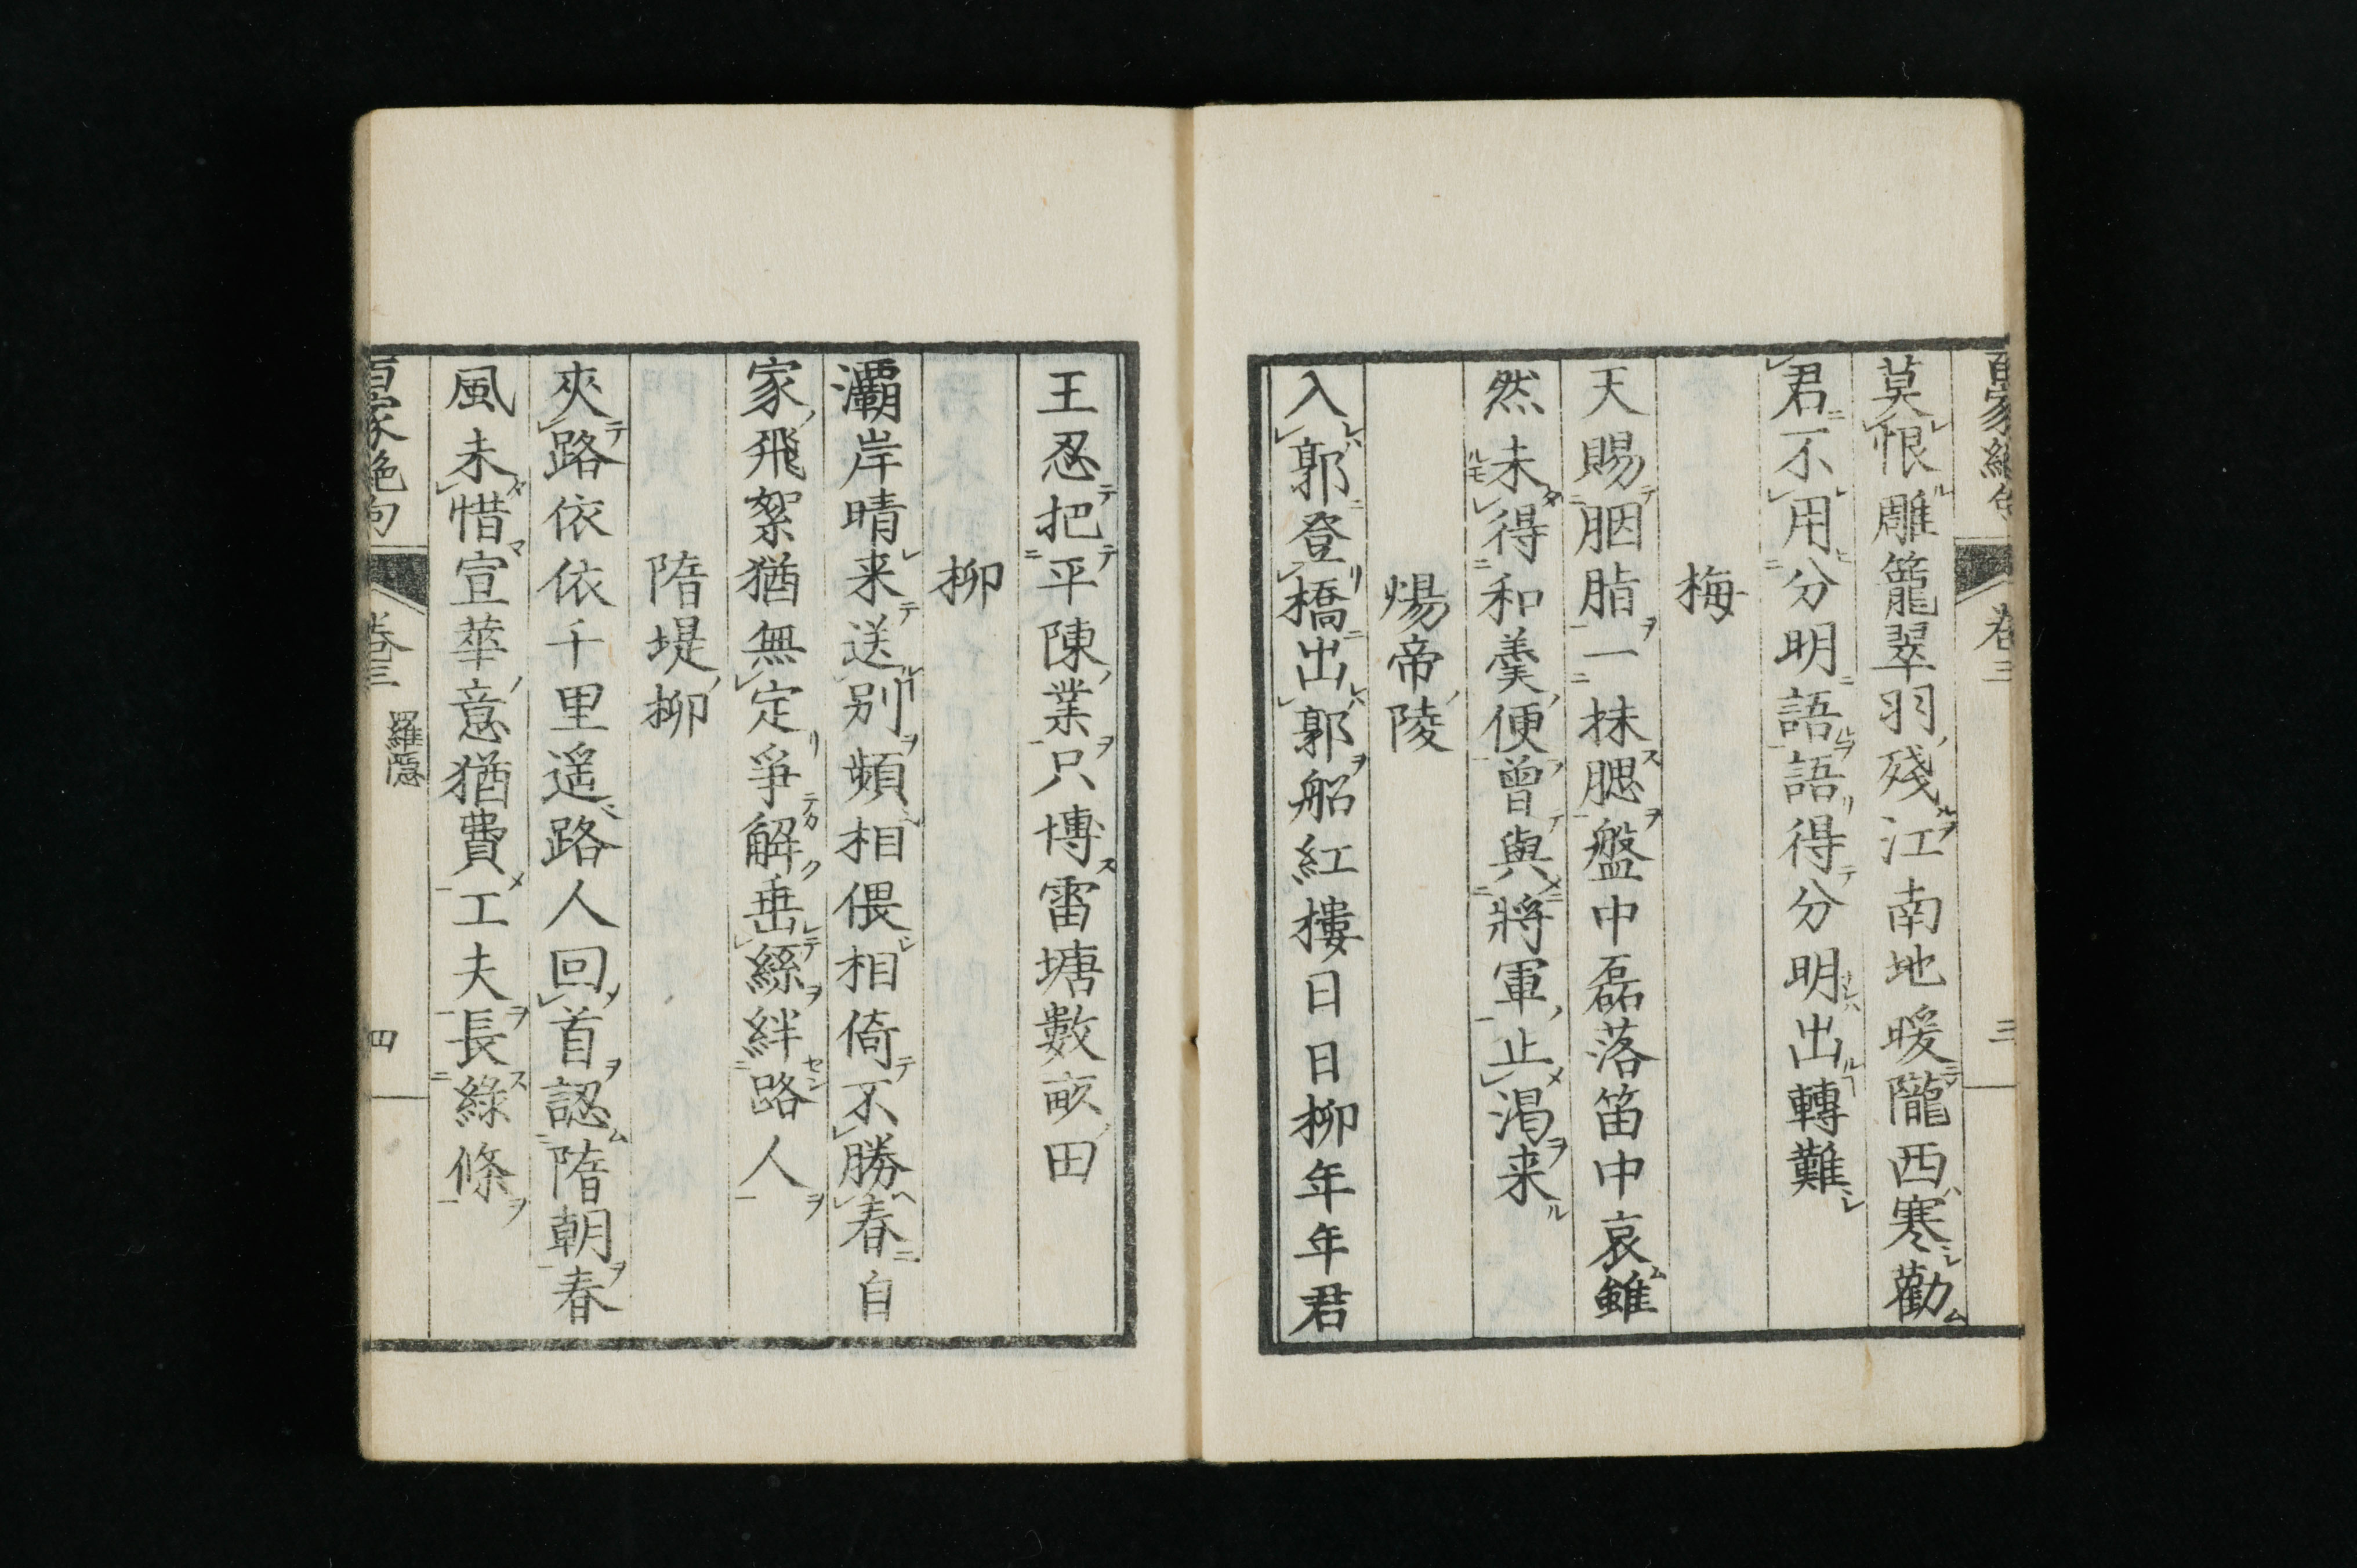 百家絶句 卷三 三
莫恨雕籠翠羽殘江南地暖隴西寒勸
君不用分明語語得分明出轉難
梅
天賜胭脂一抹腮盤中磊落笛中哀雖
然未得和羹便曾與將軍止渇来
煬帝陵
入郭登橋出郭船紅樓日日柳年年君
王忍把平陳業只博雷塘數畝田
柳
灞岸晴来送别頻相偎相倚不勝春自
家飛絮猶無定爭解垂絲絆路人
隋堤柳
夾路依依千里遥路人回首認隋朝春
風未惜宣華意猶費工夫長綠條
百家絶句 卷三 羅隱 四